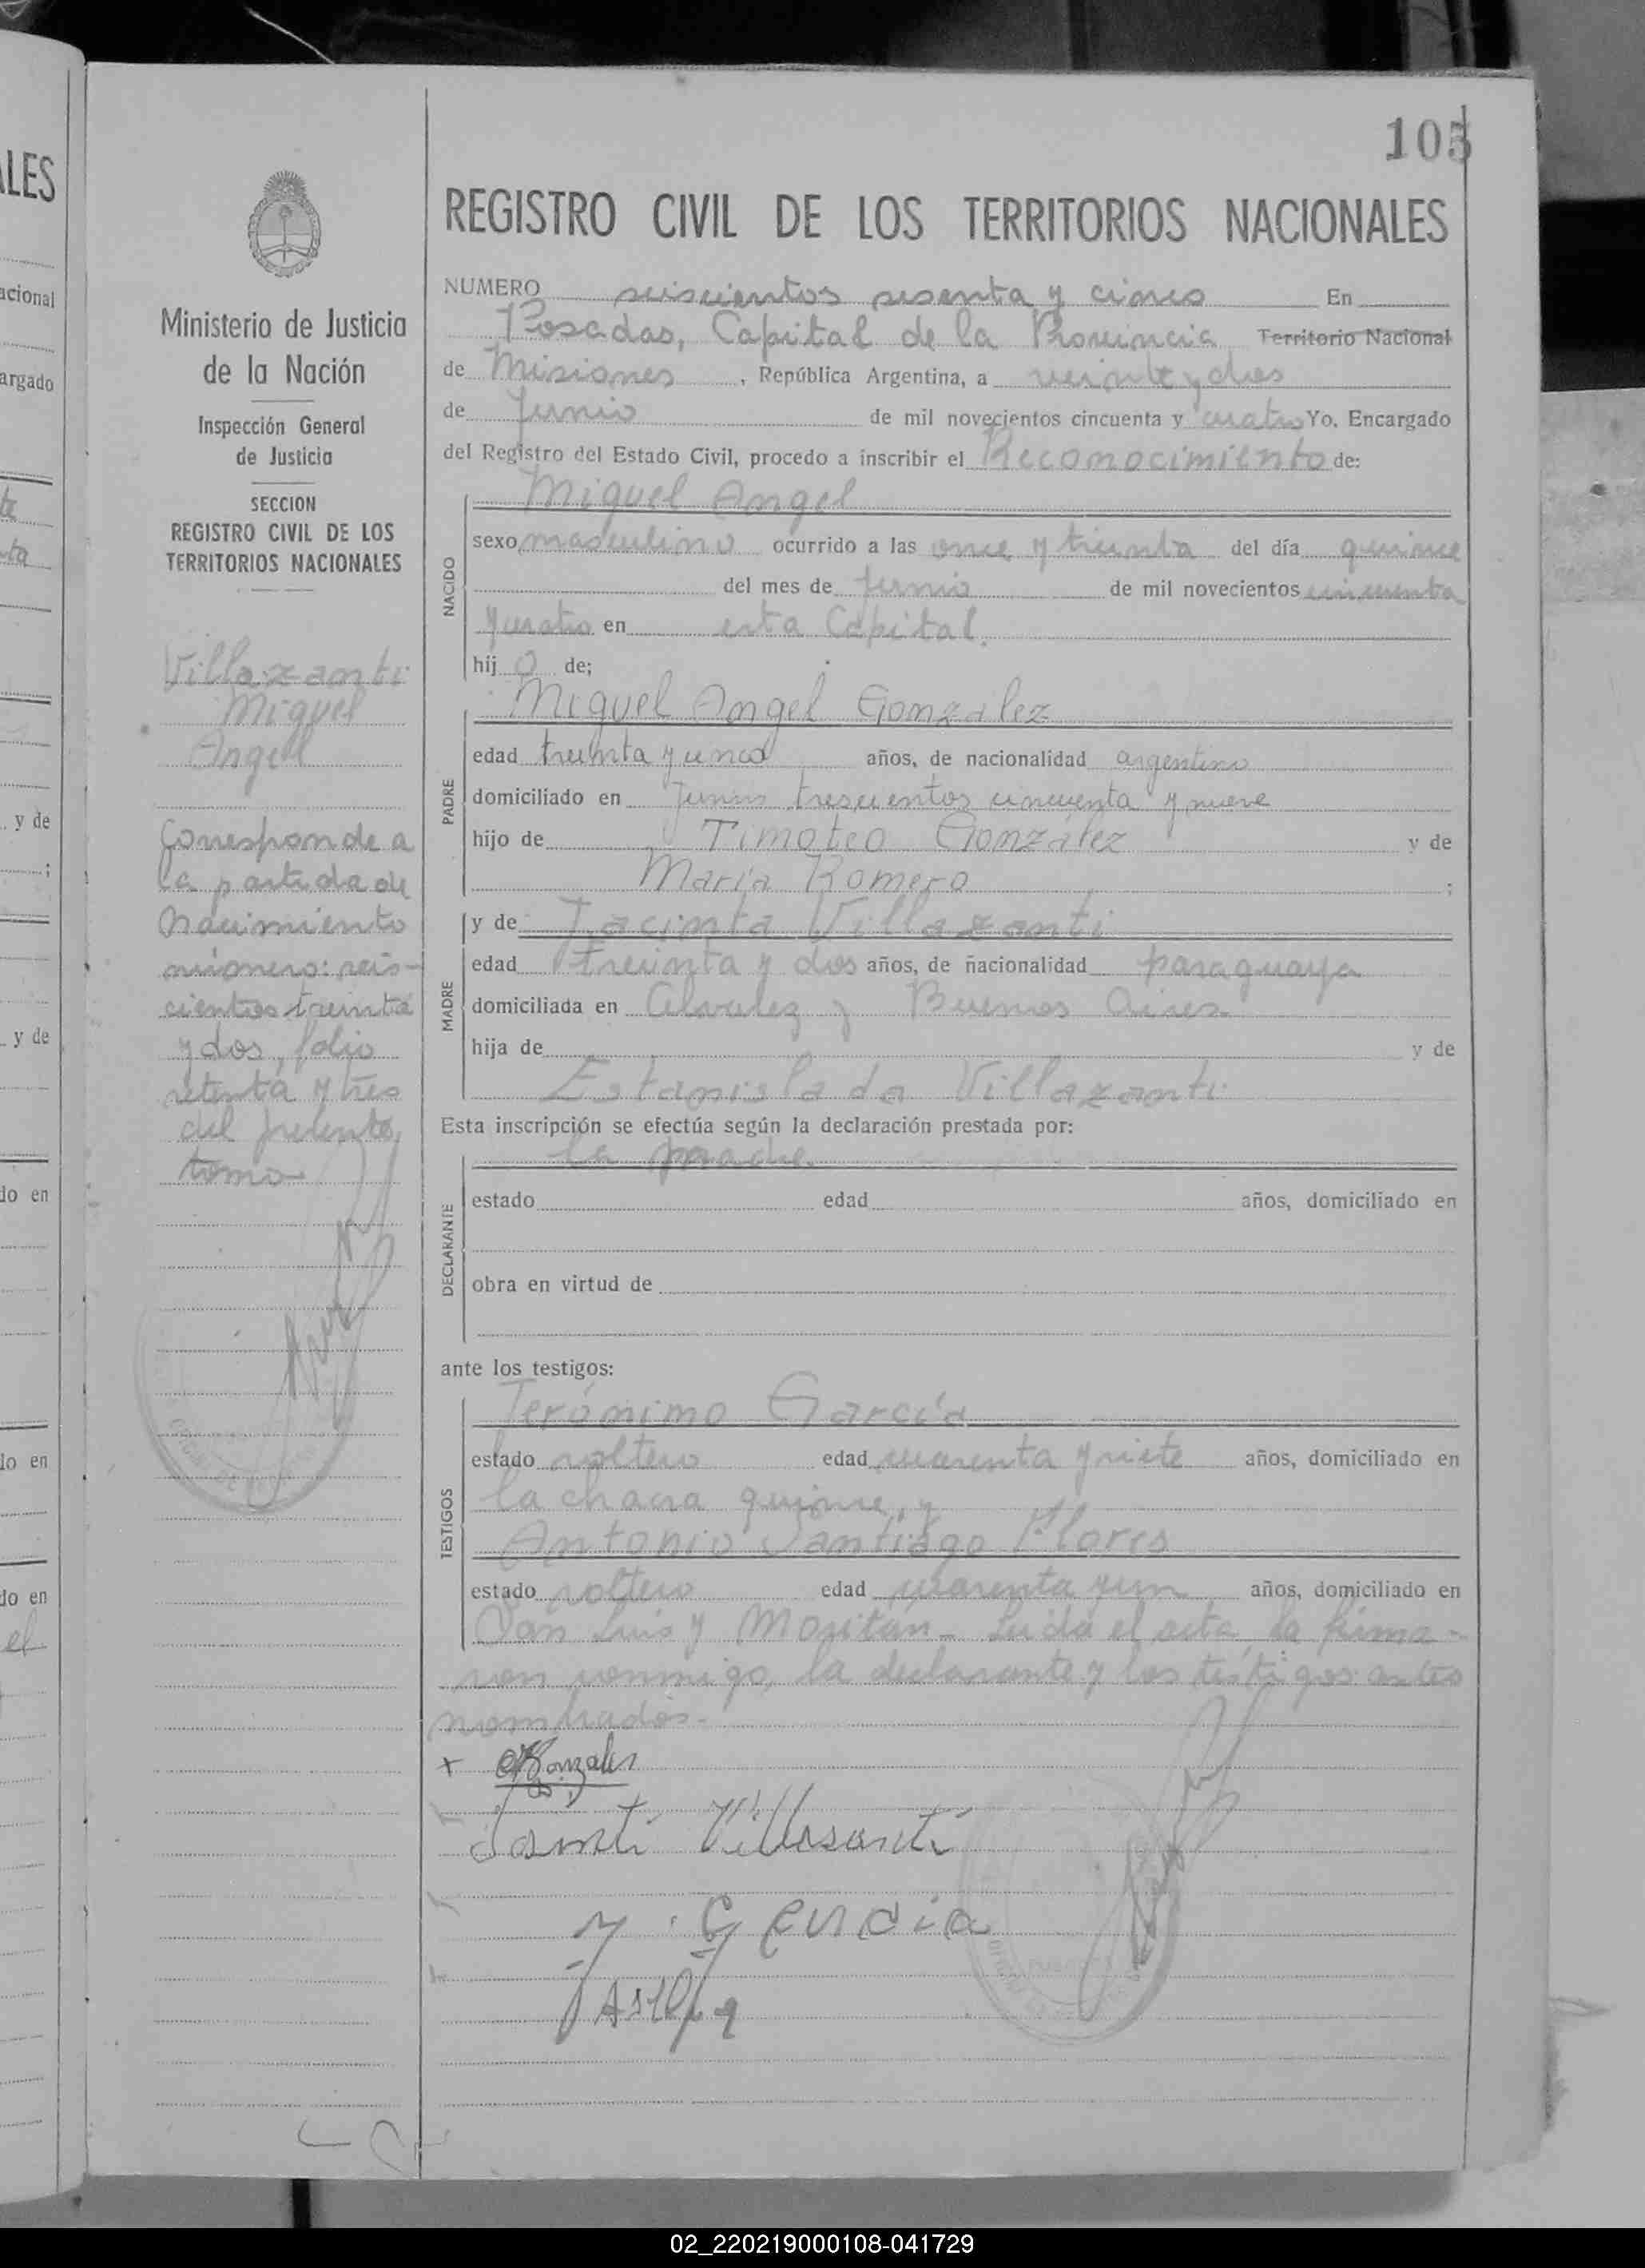 105
REGISTRO CIVIL DE LOS TERRITORIOS NACIONALES
NUMERO seiscientos sesenta y cinco En
Posadas, Capital de la Provincia Territorio Nacional
de Misiones, República Argentina, a veinte y dos
de Junio de mil novecientos cincuenta y cuatro Yo, Encargado
del Registro del Estado Civil, procedo a inscribir el Reconocimiento de:
Miguel Angel
NACIDO
sexo masculino ocurrido a las once y treinta del día quince
del mes de Junio de mil novecientos cincuenta
y cuatro en esta Capital.
hijo de;
Miguel Angel Gonzalez
PADRE
edad treinta y uno años, de nacionalidad argentino
domiciliado en Junin trescientos cincuenta y nueve
hijo de Timoteo González y de
María Romero ;
y de Jacinta Villazanti
MADRE
edad treinta y dos años, de nacionalidad paraguaya
domiciliada en Alvarez y Buenos Aires.
hija de y de
Estanislada Villazanti
Esta inscripción se efectúa según la declaración prestada por:
la madre.
DECLARANTE
estado edad años, domiciliado en
obra en virtud de
ante los testigos:
Jerónimo García
TESTIGOS
estado soltero edad cuarenta y siete años, domiciliado en
la chacra quince, y
Antonio Santiago Flores
estado soltero edad cuarenta y un años, domiciliado en
San Luis y Moritán- Leida el acta, la firma-
ron conmigo, la declarante y los testigos antes
nombrados-
+ Gonzales
Villasanti
Ministerio de Justicia
de la Nación
Inspección General
de Justicia
SECCION
REGISTRO CIVIL DE LOS
TERRITORIOS NACIONALES
Villazanti
Miguel
Angel
Corresponde a
la partida de
Nacimiento
número: seis-
cientos treinta
y dos, folio
setenta y tres
del presente
tomo
ALES
acional
argado
y de
;
y de
do en
do en
do en
el
02_220219000108-041729